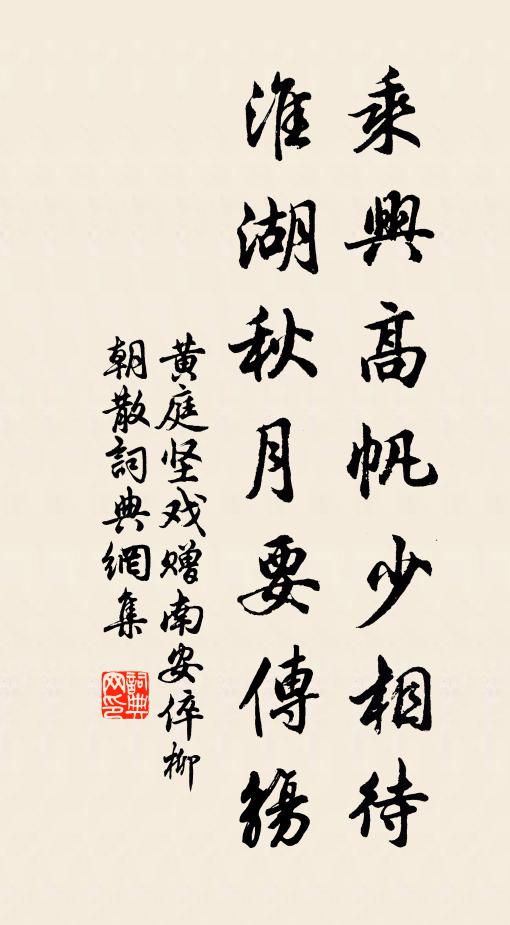 乘興高帆少相待
淮湖秋月要傳觴
黄庭坚戏赠南安倅柳
朝散詞典網集
詞典
网印